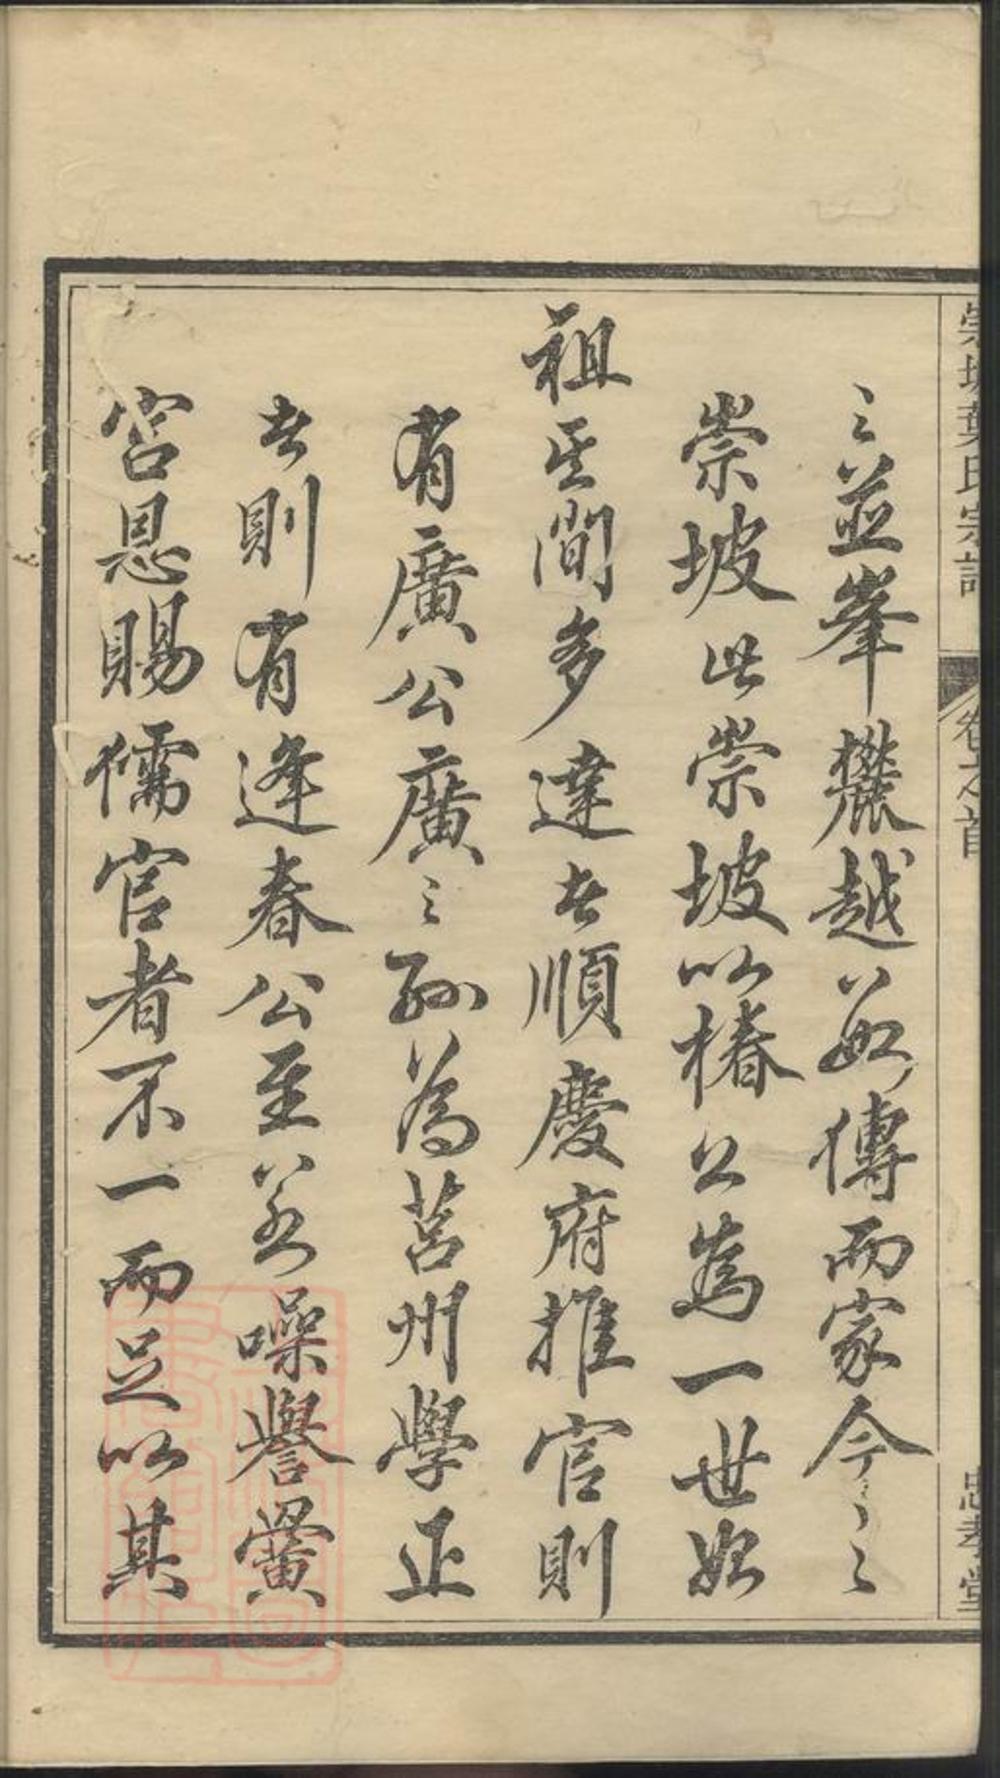 崇坡葉氏宗譜
卷之首
忠孝堂
之並峯攥越數傳而家今之
崇坡此崇坡以椿公為一世始
祖其間多達者順慶府推官則
有廣公廣之孫為莒州學正
者則有逢春公至若噪譽黌
宮恩賜儒官者不一而足以其